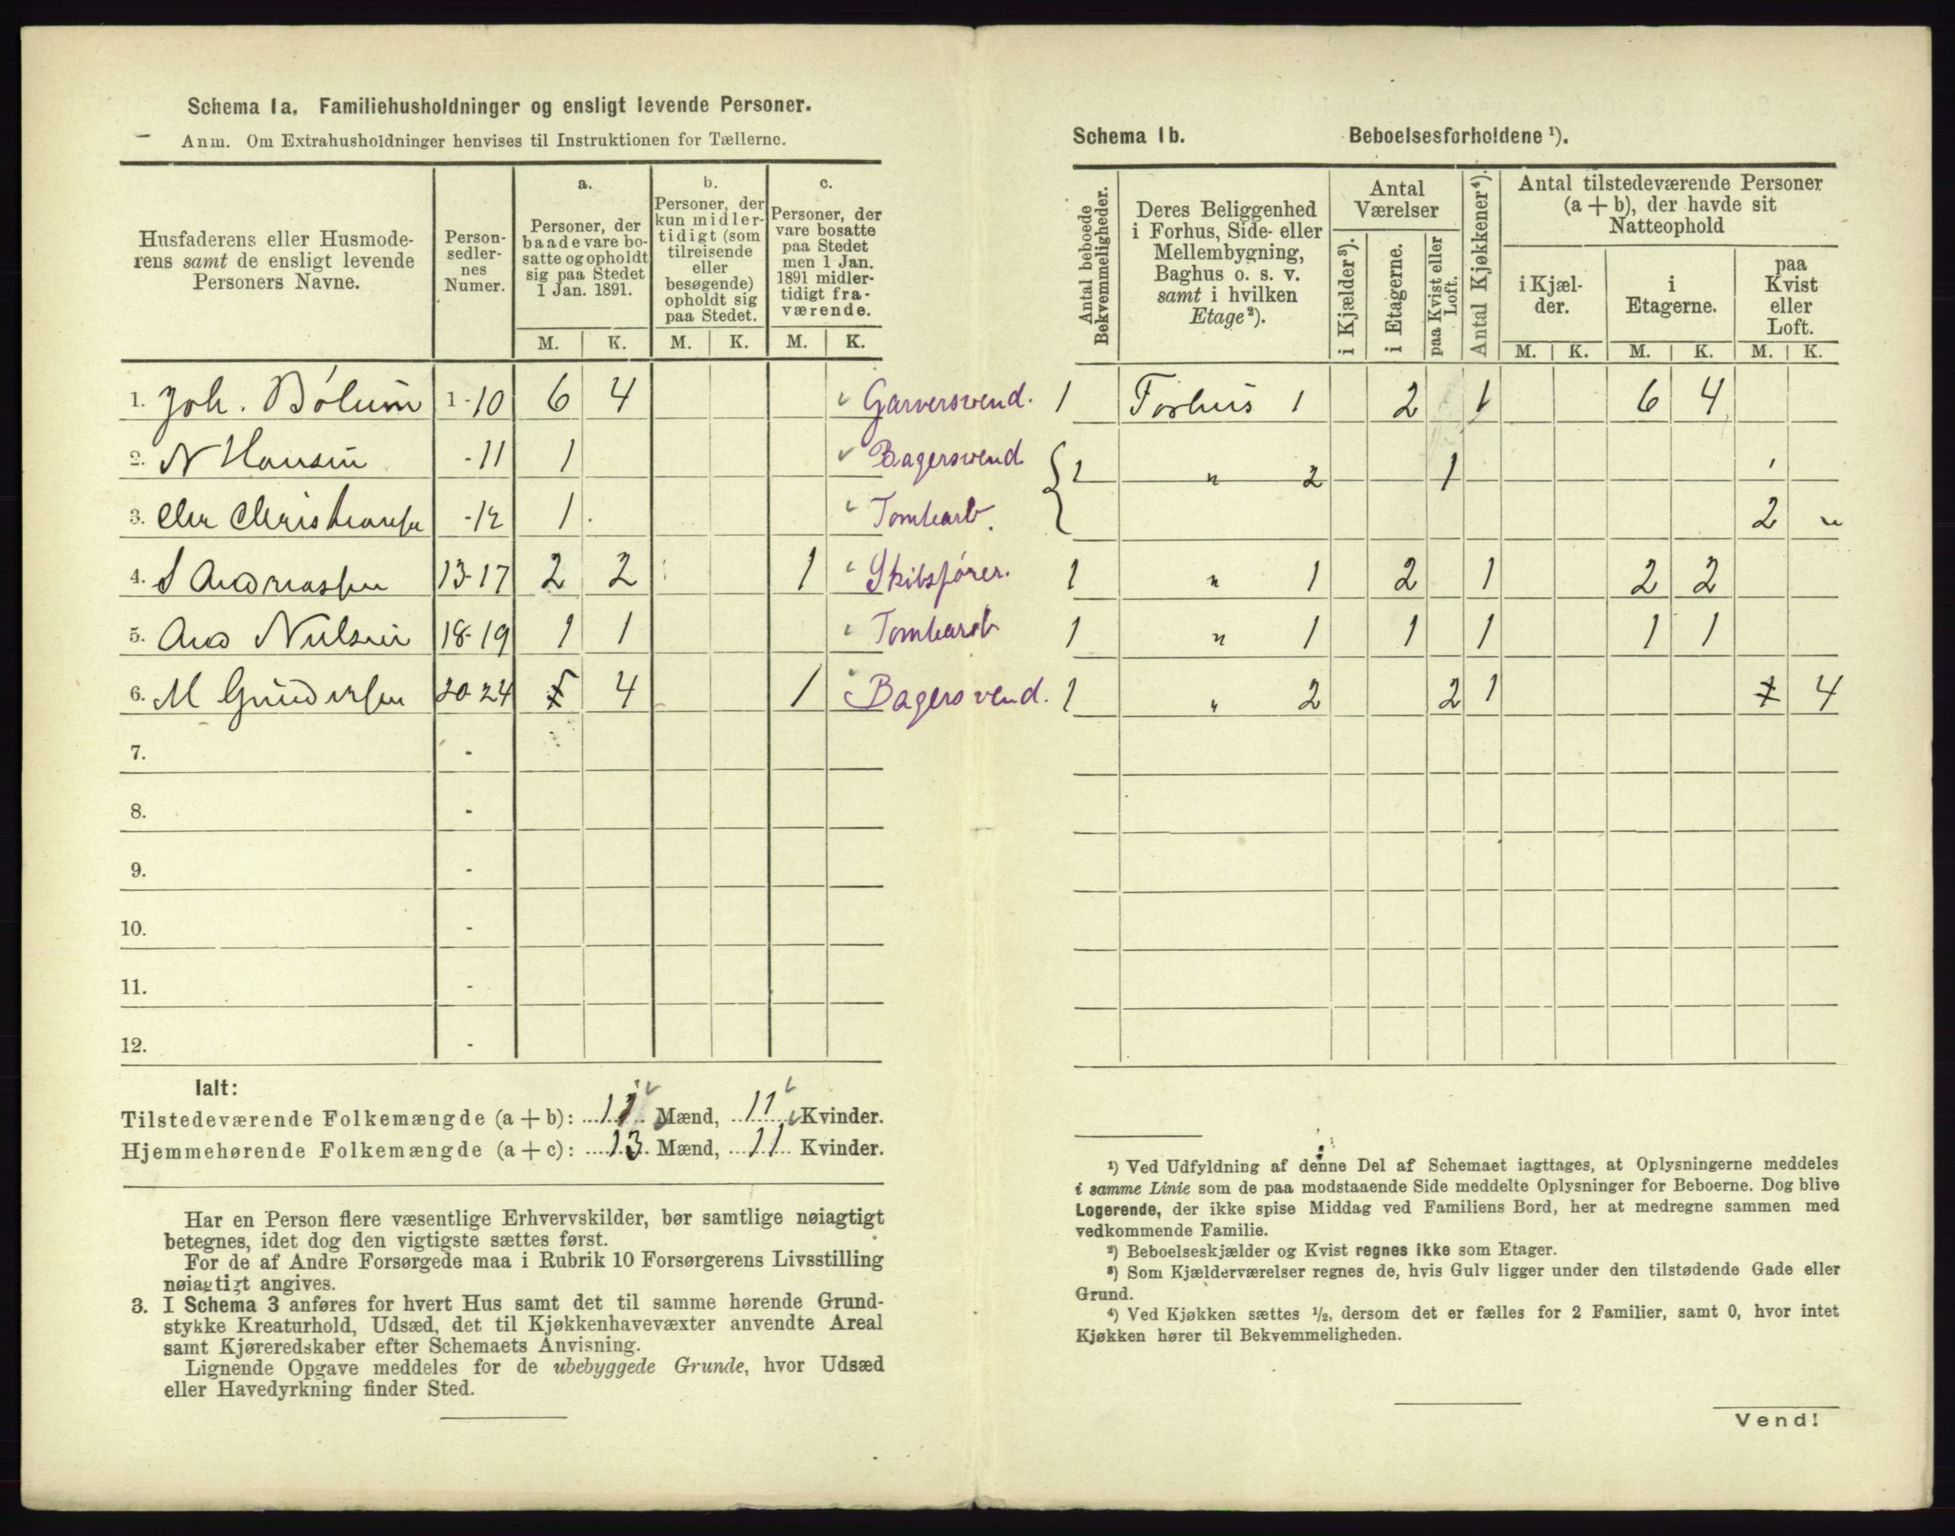 Schema 1a. Familiehusholdninger og ensligt levende Personer.
Anm. Om Extrahusholdninger henvises til Instruktionen for Tællerne.
Husfaderens eller Husmode-
rens samt de ensligt levende
Personers Navne.
Person-
sedler-
nes
Numer.
a.
Personer, der
baade vare bo-
satte og opholdt
sig paa Stedet
1 Jan. 1891.
b.
Personer, der
kun midler-
tidigt (som
tilreisende
eller
besøgende)
opholdt sig
paa Stedet.
c.
Personer, der
vare bosatte
paa Stedet
men 1 Jan.
1891 midler-
tidigt fra-
værende.
M. K. M. K. M. K.
1. Joh. Bólum 1-10 6 4 Garversvend.
2. N Hansen -11 1 Bagersvend.
3. Chr Christiansen -12 1 Tomtearb.
4. S Andreassen 13-17 2 2 1 Skibsfører.
5. And Nielsen 18-19 1 1 Tomtearb
6. M Gundersen 20-24 4 1 Bagersvend.
7. -
8. -
9. -
10. -
11. -
12. -
Ialt:
Tilstedeværende Folkemængde (a+b): 11 Mænd, 11 Kvinder.
Hjemmehørende Folkemængde (a+c): 13 Mænd, 11 Kvinder.
Har en Person flere væsentlige Erhvervskilder, bør samtlige nøiagtigt
betegnes, idet dog den vigtigste sættes først.
For de af Andre Forsørgede maa i Rubrik 10 Forsørgerens Livsstilling
nøiagtigt angives.
3. I Schema 3 anføres for hvert Hus samt det til samme hørende Grund-
stykke Kreaturhold, Udsæd, det til Kjøkkenhavevæxter anvendte Areal
samt Kjøreredskaber efter Schemaets Anvisning.
Lignende Opgave meddeles for de ubebyggede Grunde, hvor Udsæd
eller Havedyrkning finder Sted.
Schema 1b. Beboelsesforholdene ¹).
Antal beboede
Bekvemmeligheder.
Deres Beliggenhed
i Forhus, Side- eller
Mellembygning,
Baghus o. s. v.
samt i hvilken
Etage²).
Antal
Værelser
i Kjælder³).
i Etagerne.
paa Kvist eller
Loft.
Antal Kjøkkener⁴).
Antal tilstedeværende Personer
(a+b), der havde sit
Natteophold
i Kjæl-
der.
i
Etagerne.
paa
Kvist
eller
Loft.
M. K. M. K. M. K.
1 Forhus 1 2 1 6 4
1 " 2 1
2 "
1 " 1 2 1 2 2
1 " 1 1 1 1 1
1 " 2 2 1 4
¹) Ved Udfyldning af denne Del af Schemaet iagttages, at Oplysningerne meddeles
i samme Linie som de paa modstaaende Side meddelte Oplysninger for Beboerne. Dog blive
Logerende, der ikke spise Middag ved Familiens Bord, her at medregne sammen med
vedkommende Familie.
²) Beboelseskjælder og Kvist regnes ikke som Etager.
³) Som Kjælderværelser regnes de, hvis Gulv ligger under den tilstødende Gade eller
Grund.
⁴) Ved Kjøkken sættes ½, dersom det er fælles for 2 Familier, samt 0, hvor intet
Kjøkken hører til Bekvemmeligheden.
Vend!